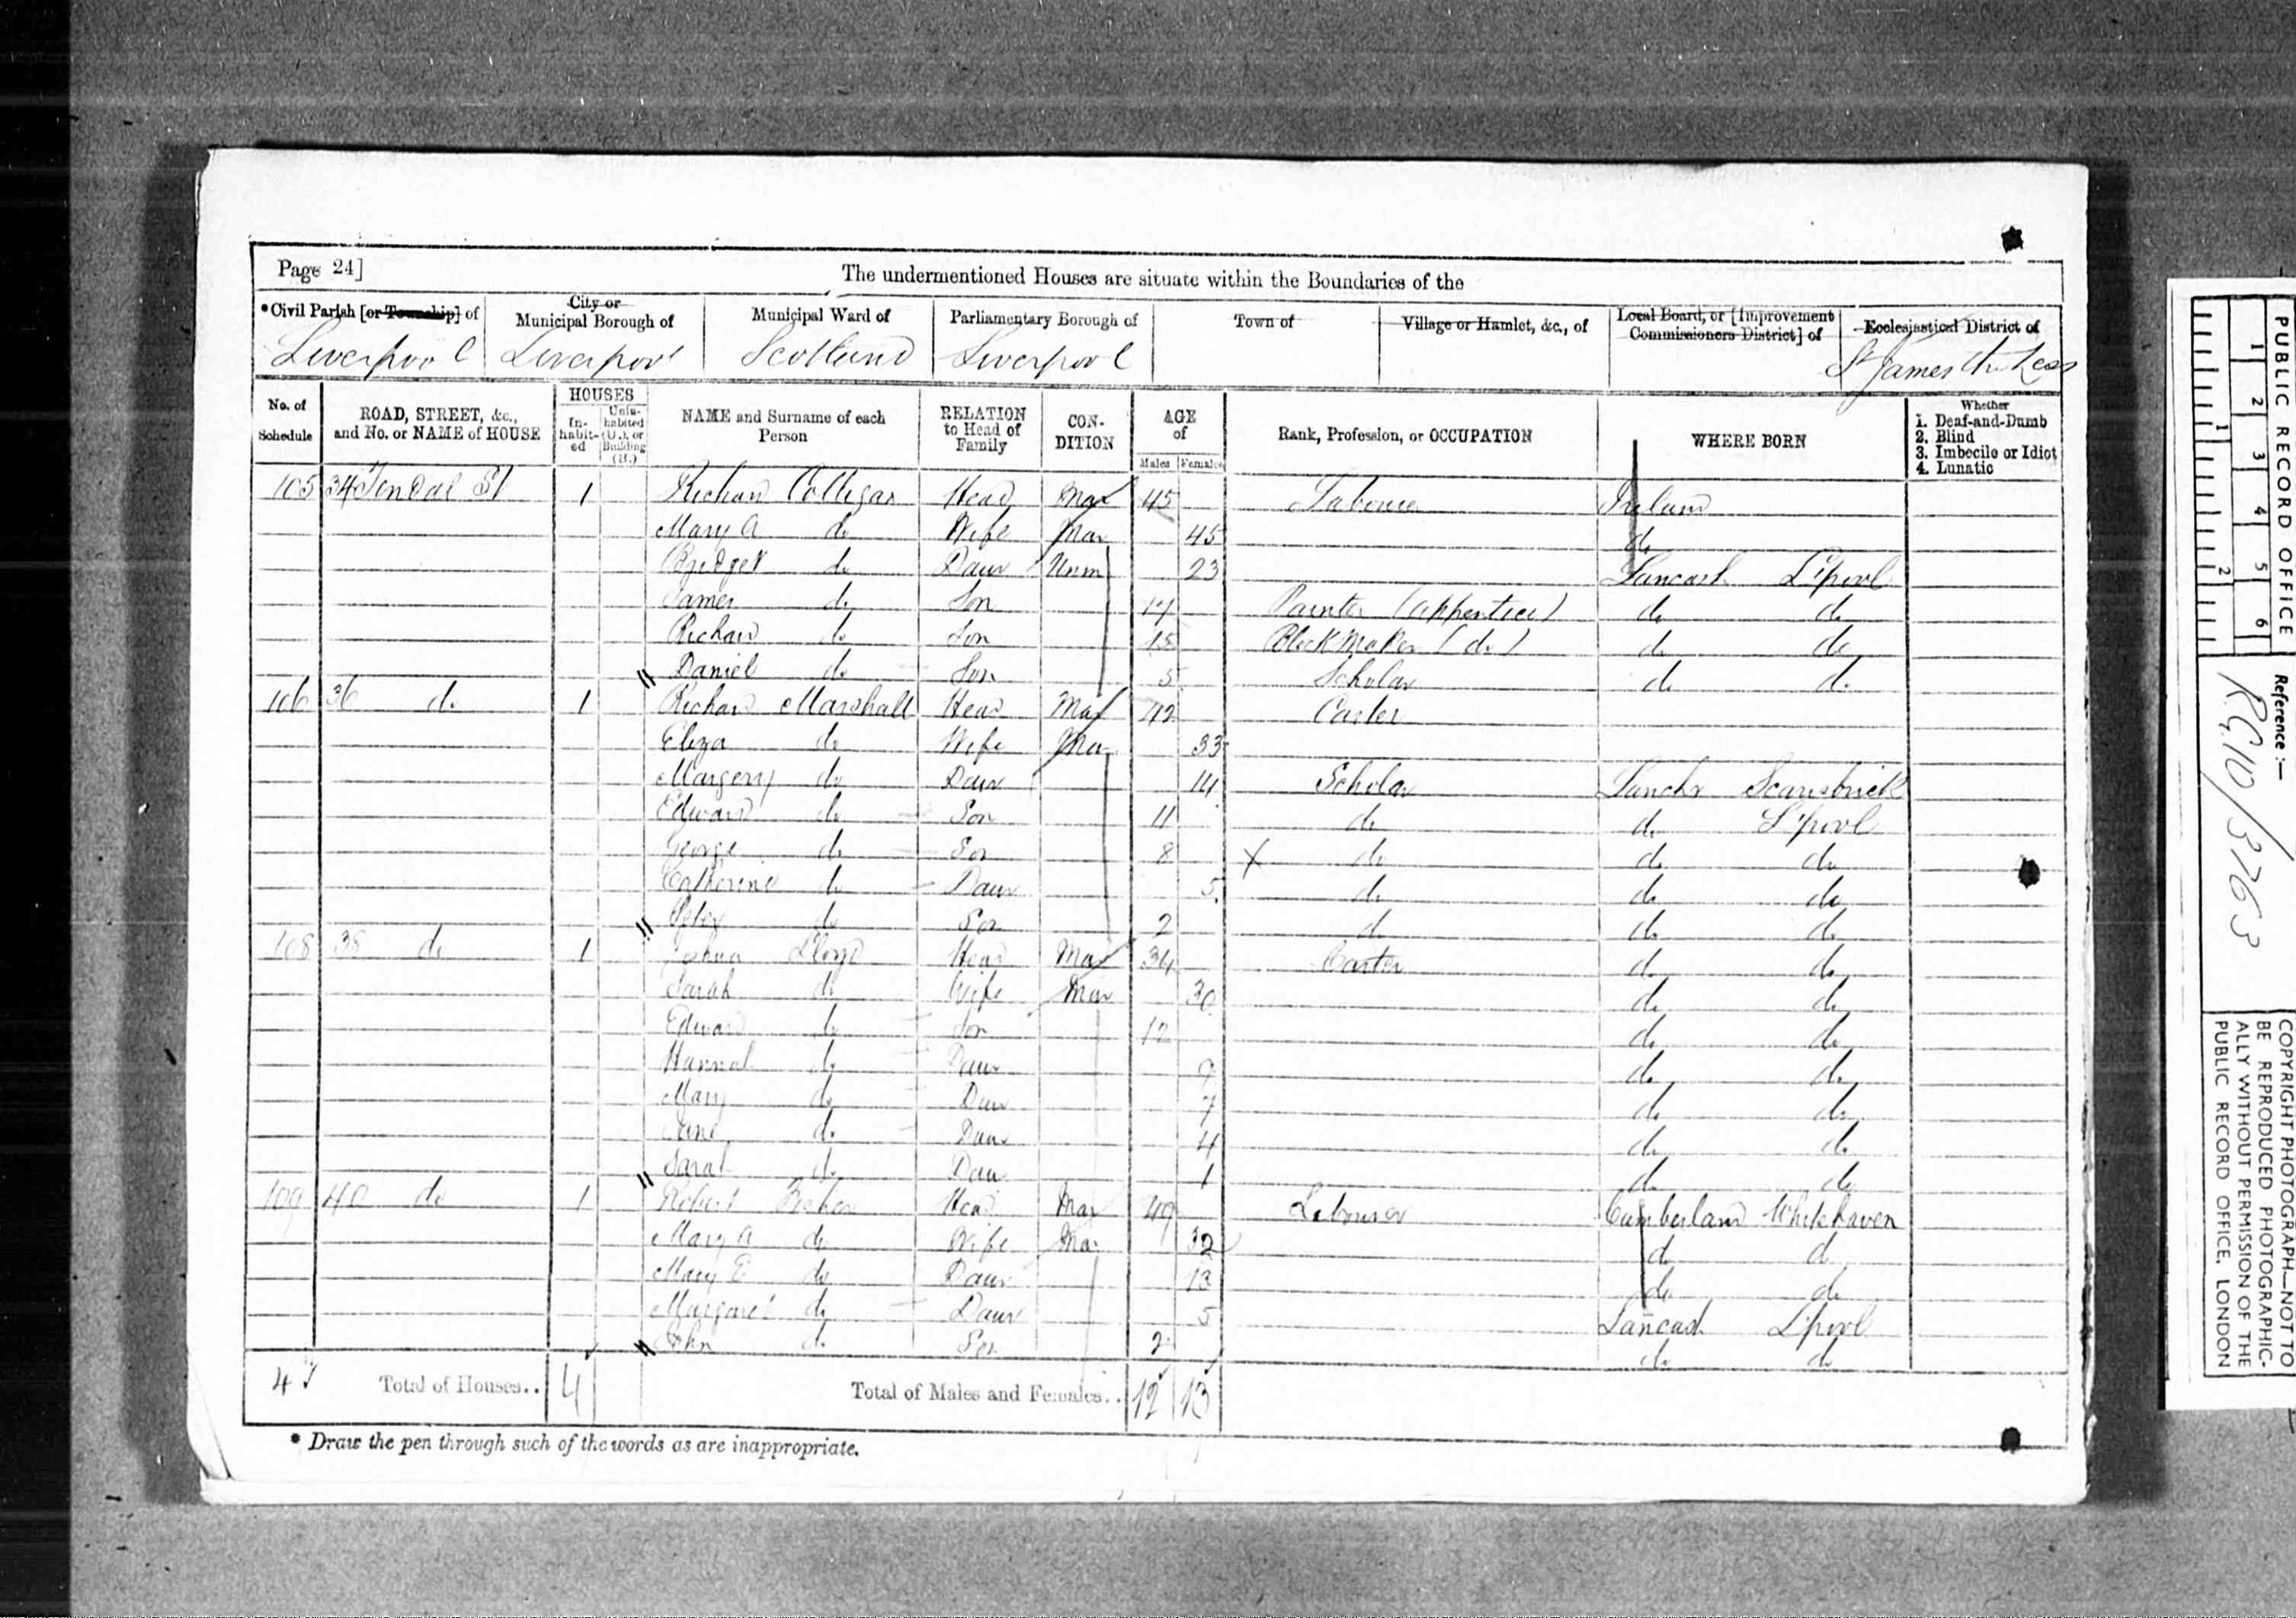 Page 24]
The undermentioned Houses are situate within the Boundaries of the
*Civil Parish [or Township] of
City or Municipal Borough of
Municipal Ward of
Parliamentary Borough of
Town of
Village or Hamlet, &c., of
Local Board, or [Improvement Commissioners District] of
Ecclesiastical District of
Liverpool Liverpool Scotland Liverpool St James the Less
No. of Schedule
ROAD, STREET, &c., and No. or NAME of HOUSE
HOUSES
In-habit-ed
Unin-habited (U.), or Building (B.)
NAME and Surname of each Person
RELATION to Head of Family
CON-DITION
AGE of
Males Females
Rank, Profession, or OCCUPATION
WHERE BORN
Whether
1. Deaf-and-Dumb
2. Blind
3. Imbecile or Idiot
4. Lunatic
105 34 St 1 Richard Colligan Head Mar 45 Labourer Ireland
Mary A do Wife Mar 45 do
Bridget do Daur Unm 23 Lancash L'pool
James do Son 17 Painter (apprentice) do do
Richard do Son 15 Block Maker (do) do do
Daniel do Son 5 Scholar do do
106 36 do 1 Richard Marshall Head Mar 42 Carter
Eliza do Wife Mar 33
Margery do Daur 14 Scholar Lanchr Scarisbrick
Edward do Son 11 do do L'pool
George do Son 8 X do do do
Catherine do Daur 5 do do do
Peter do Son 2 do do do
108 38 do 1 Joshua Lloyd Head Mar 34 Carter do do
Sarah do Wife Mar 30 do do
Edward do Son 12 do do
Hannah do Daur 9 do do
Mary do Daur 7 do do
Jane do Daur 4 do do
Sarah do Daur 1 do do
109 40 do 1 Robert Head Mar 49 Labourer Cumberland Whitehaven
Mary A do Wife Mar 32 do do
Mary E do Daur 13 do do
Margaret do Daur 5 Lancash L'pool
John do Son 2 do do
4 Total of Houses.. 4 Total of Males and Females.. 12 13
* Draw the pen through such of the words as are inappropriate.
PUBLIC RECORD OFFICE
1 2 3 4 5 6
1 2
Reference :—
R.G.10/3763
COPYRIGHT PHOTOGRAPH—NOT TO
BE REPRODUCED PHOTOGRAPHIC-
ALLY WITHOUT PERMISSION OF THE
PUBLIC RECORD OFFICE, LONDON